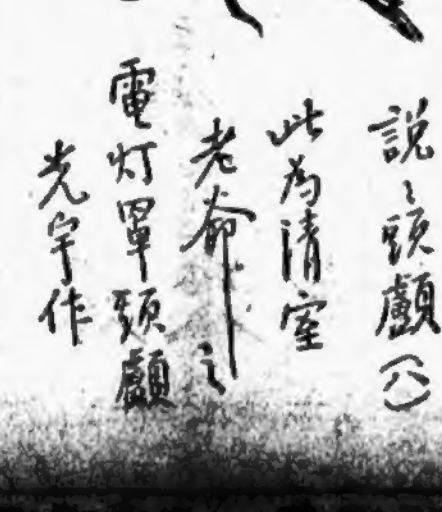 說〻頭顱(八)
此為清室
老爺之
電灯罩頭顱
光宇作